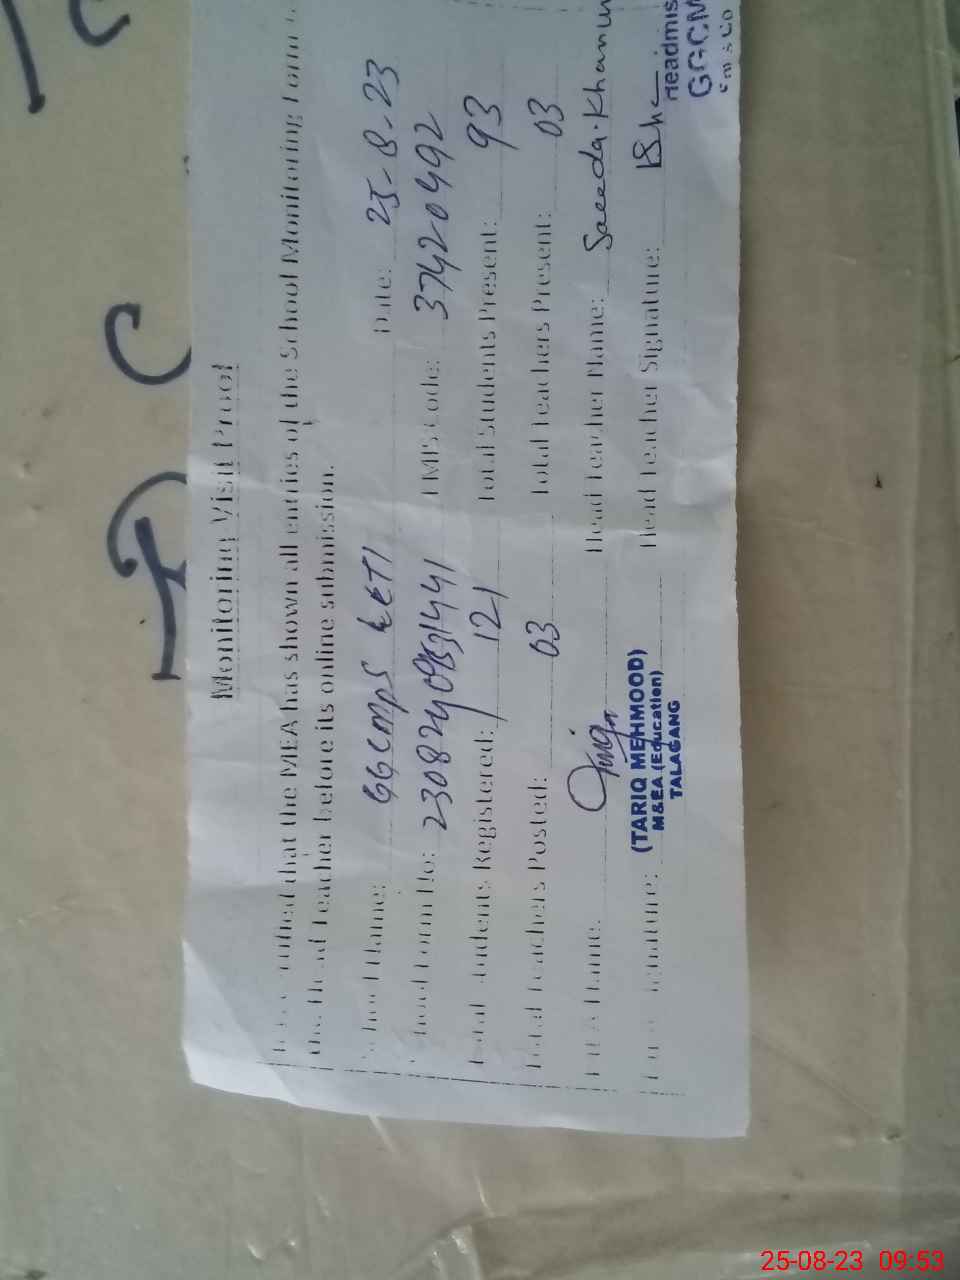 Monitoring Visit Proof
certified that the MEA has shown all entries of the School Monitoring Form
the Head Teacher before its online submission.
School Name: GGCMPS KETI Date: 25-8-23
School Form No: EMIS Code: 37420492
Total Students Registered: 121 Total Students Present: 93
Total Teachers Posted: 03 Total Teachers Present: 03
MEA Name: Head Teacher Name: Saeeda Khanum
Signature: Head Teacher Signature:
(TARIQ MEHMOOD)
M&EA (Education)
TALAGANG
Headmis
GGCM
25-08-23 09:53